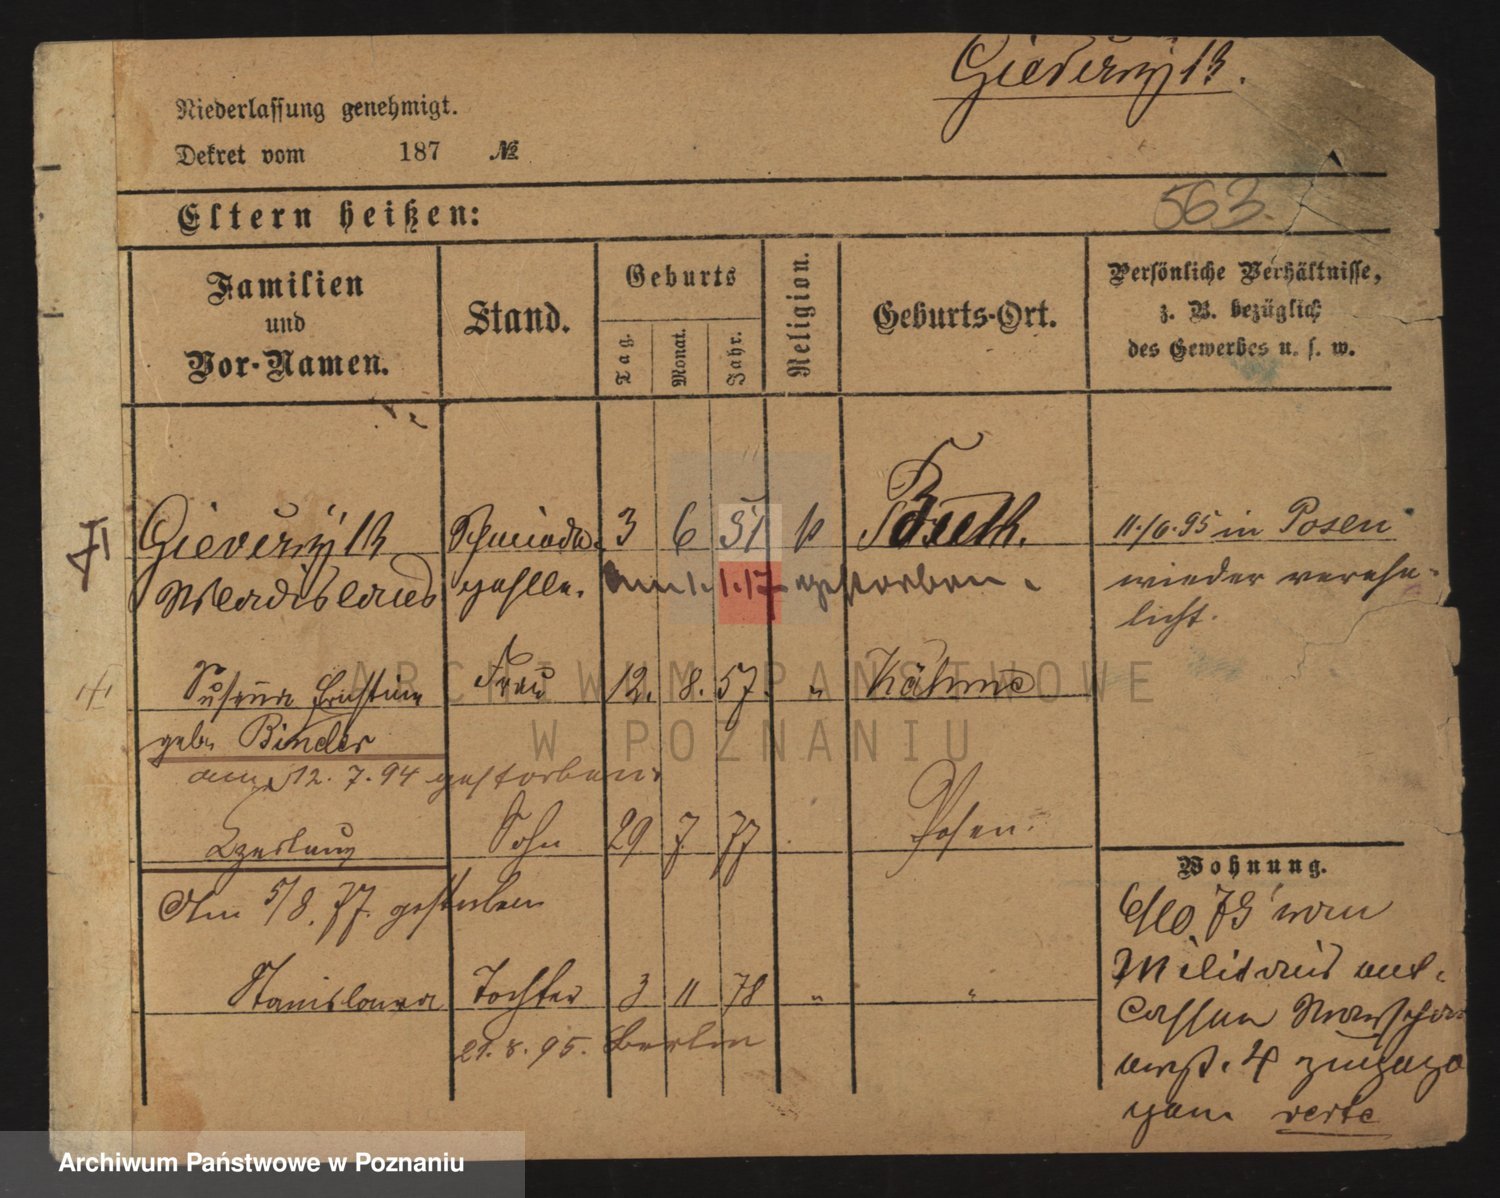 Gieverzyk.
Niederlassung genehmigt.
Dekret vom 187 №
563.
Eltern heißen:
Familien und Vor-Namen.
Stand.
Geburts
Tag.
Monat.
Jahr.
Religion.
Geburts-Ort.
Persönliche Verhältnisse,
z. B. bezüglich
des Gewerbes u. s. w.
Schneider 3 6 51 k 11./6.95 in Posen
Wladislaus geselle. am 1.1.17 gestorben. wieder verehe-
licht.
Frau 12. 8. 57. " Kähme
geb. Binder
am 12. 7. 94 gestorben.
Sohn 29 7 77 Posen.
Am 5/8. 77. gestorben
Wohnung.
79 vom
Stanislawa Tochter 3 11 78 " "
29. 8. 95. Berlin
4 zugezo
gen verte
ARCHIWUM PAŃSTWOWE
W POZNANIU
Archiwum Państwowe w Poznaniu